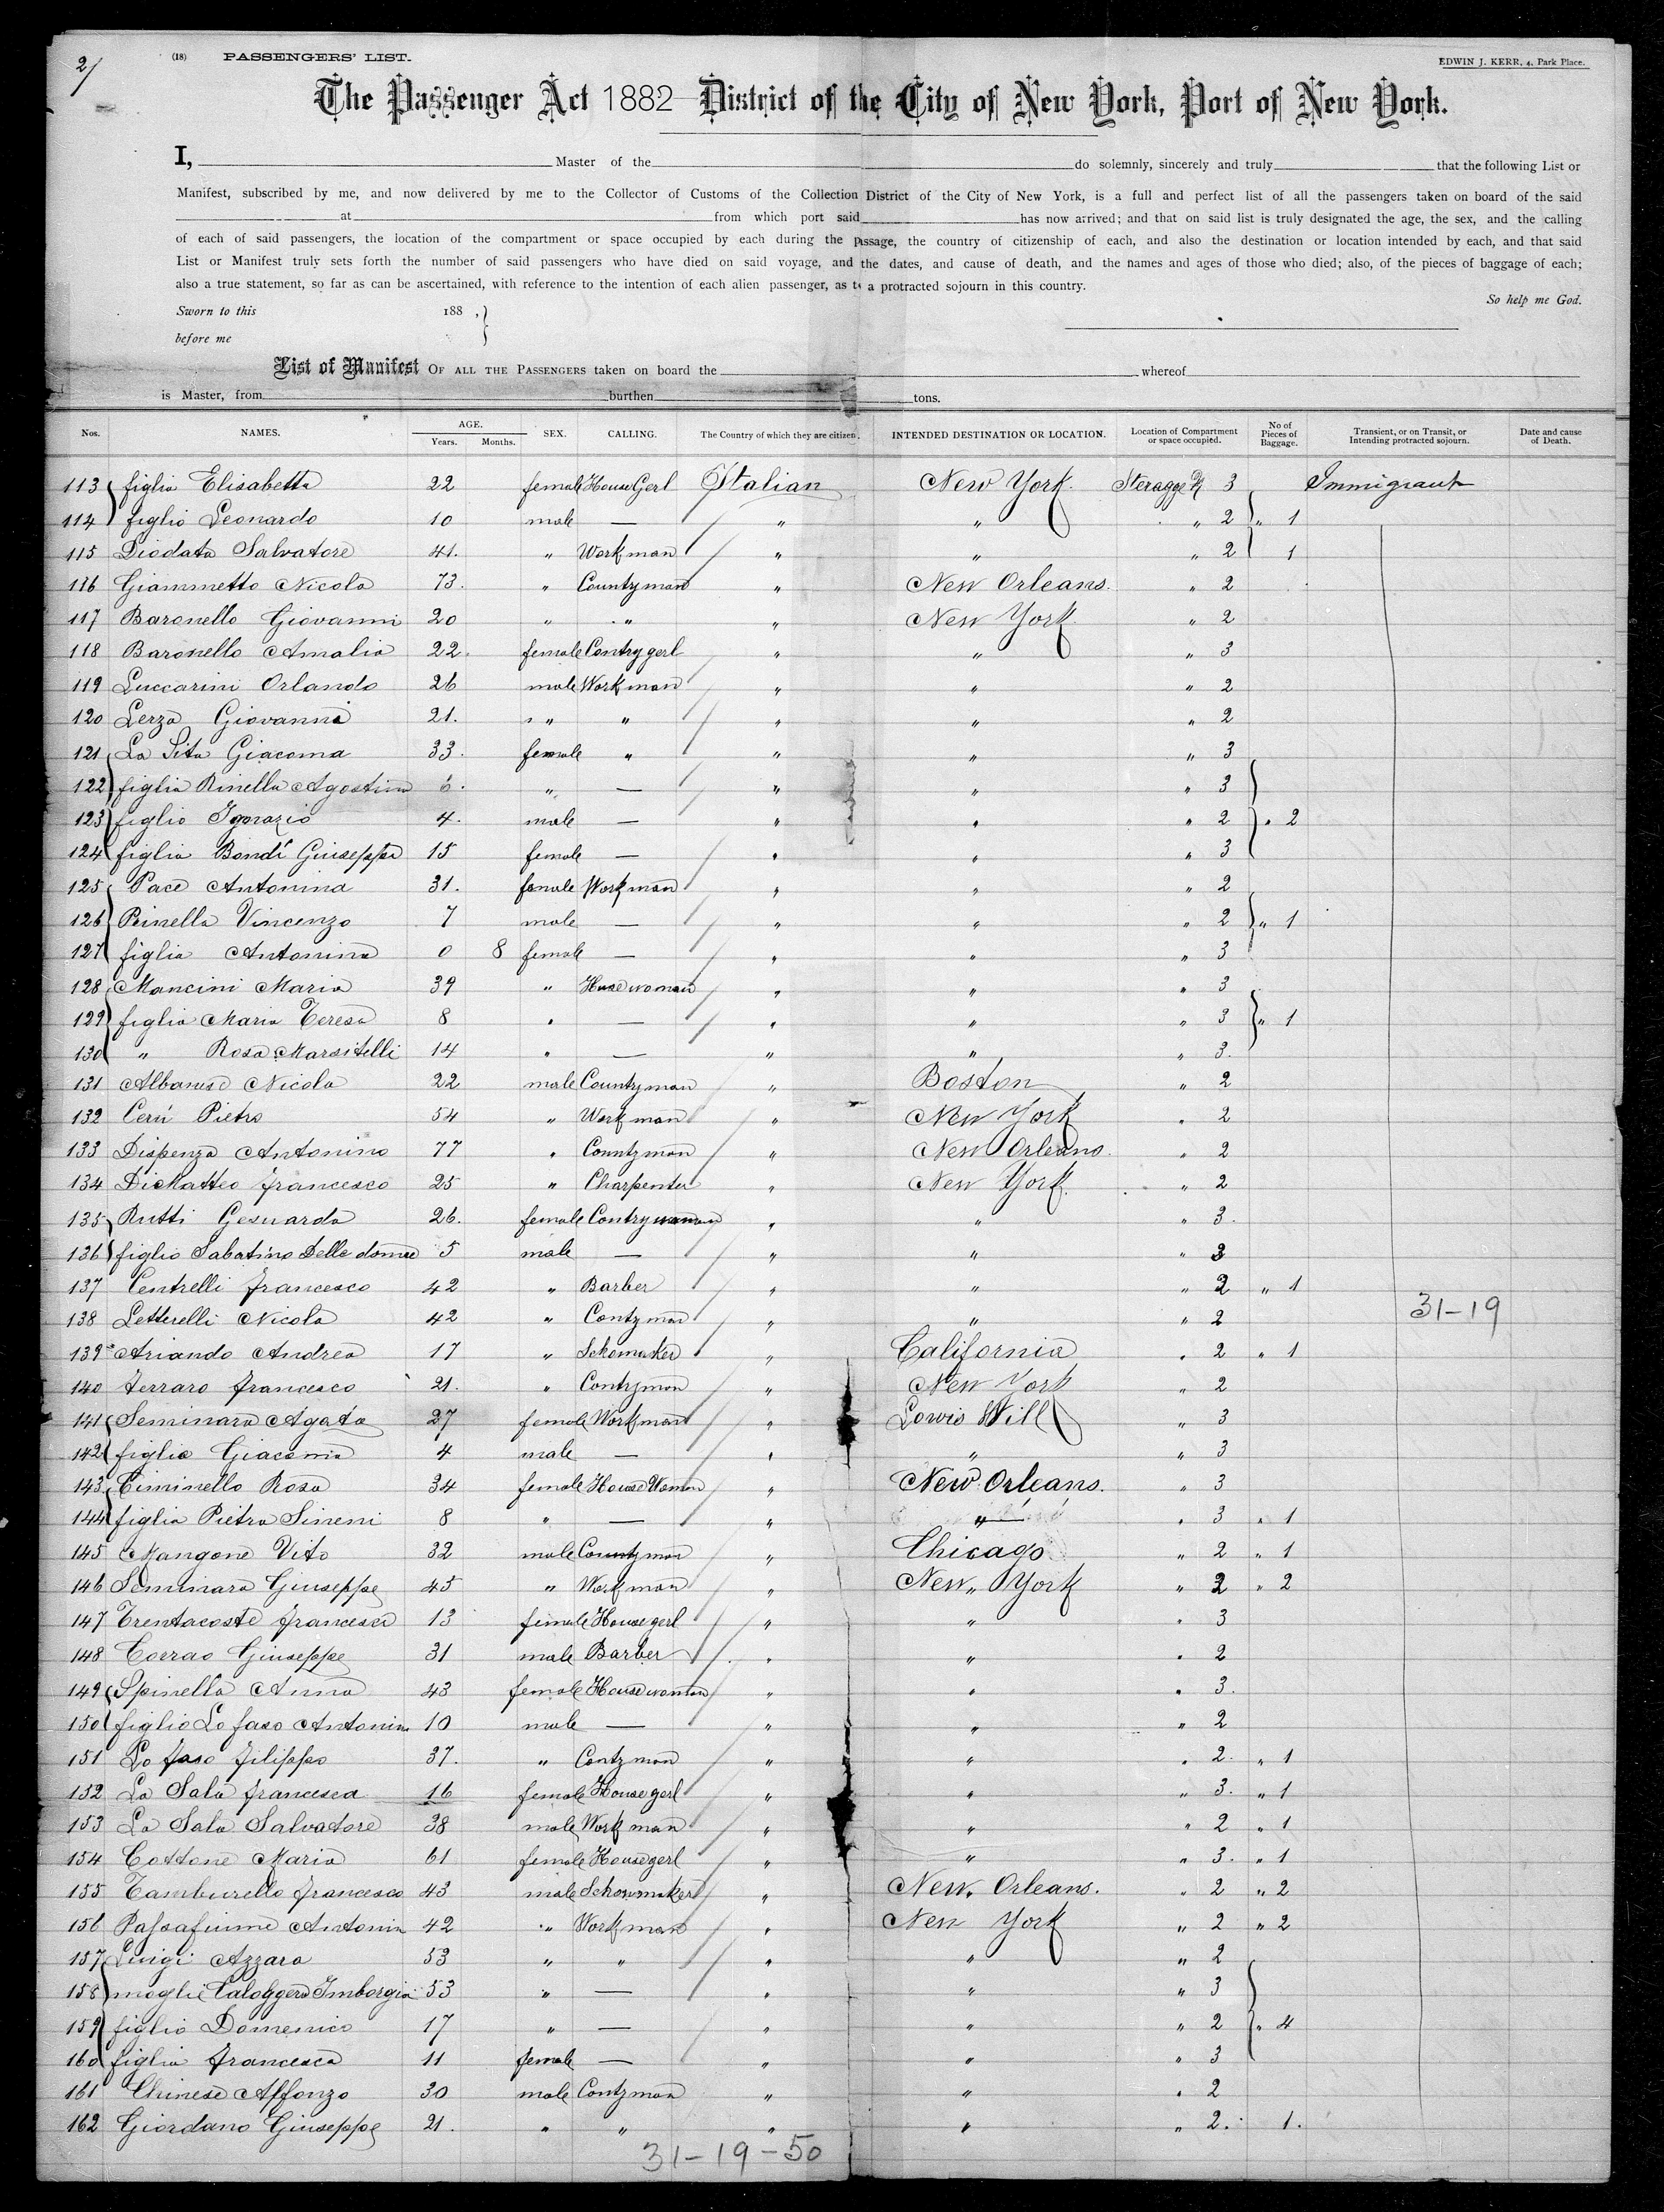 2/
(18) PASSENGERS' LIST.
EDWIN J. KERR, 4, Park Place.
The Passenger Act 1882 District of the City of New York, Port of New York.
I, Master of the do solemnly, sincerely and truly that the following List or
Manifest, subscribed by me, and now delivered by me to the Collector of Customs of the Collection District of the City of New York, is a full and perfect list of all the passengers taken on board of the said
at from which port said has now arrived; and that on said list is truly designated the age, the sex, and the calling
of each of said passengers, the location of the compartment or space occupied by each during the passage, the country of citizenship of each, and also the destination or location intended by each, and that said
List or Manifest truly sets forth the number of said passengers who have died on said voyage, and the dates, and cause of death, and the names and ages of those who died; also, of the pieces of baggage of each;
also a true statement, so far as can be ascertained, with reference to the intention of each alien passenger, as to a protracted sojourn in this country.
So help me God.
Sworn to this 188 ,
before me
List of Manifest OF ALL THE PASSENGERS taken on board the whereof
is Master, from burthen tons.
Nos. NAMES. AGE. Years. Months. SEX. CALLING. The Country of which they are citizen. INTENDED DESTINATION OR LOCATION. Location of Compartment or space occupied. No of Pieces of Baggage. Transient, or on Transit, or Intending protracted sojourn. Date and cause of Death.
113 figlia Elisabetta 22 female House Gerl Italian New York Steragge 3 Immigrant
114 figlio Leonardo 10 male — " " " 2 " 1
115 Diodata Salvatore 41. " Workman " " " 2 1
116 Giammetto Nicola 73. " Countryman " New Orleans. " 2
117 Baronello Giovanni 20 " " " New York " 2
118 Baronello Amalia 22. female Contry gerl " " " 3
119 Luccarini Orlando 26 male Workman " " " 2
120 Lerza Giovanni 21. " " " " " 2
121 La Sita Giacoma 33. female " " " " 3
122 figlia Rinella Agostina 6. " — " " " 3
123 figlio Ignazio 4. male — " " " 2 " 2
124 figlia Bondi Giuseppa 15 female — " " " 3
125 Pace Antonina 31. female Workman " " " 2
126 Rinella Vincenzo 7 male — " " " 2 " 1
127 figlia Antonina 0 8 female — " " " 3
128 Mancini Maria 39 " Housewoman " " " 3
129 figlia Maria Teresa 8 " — " " " 3 " 1
130 " Rosa Marsitelli 14 " — " " " 3.
131 Albanese Nicola 22 male Countryman " Boston " 2
132 Cerú Pietro 54 " Workman " New York " 2
133 Dispenza Antonino 77 " Countzman " New Orleans. " 2
134 DiMatteo francesco 25 " Charpenter " New York. " 2
135 Rutti Gesuarda 26. female Contrywoman " " " 3.
136 figlio Sabatino Delle donne 5 male — " " " 2
137 Centrelli francesco 42 " Barber " " " 2 " 1
138 Letterelli Nicola 42 " Contzman " " " 2 31-19
139 Ariando Andrea 17 " Schomaker " California " 2 " 1
140 ferraro francesco 21. " Contryman " New York " 2
141 Seminara Agata 27 female Workman " Lowis Will " 3
142 figlia Giacoma 4 male — " " " 3
143 Ciminello Rosa 34 female House Woman " New Orleans. " 3
144 figlia Pietra Sineni 8 " — " " " 3 " 1
145 Mangone Vito 32 male Countzman " Chicago " 2 " 1
146 Seminara Giuseppe 45 " Workman " New York " 2 " 2
147 Trentacoste francesca 13 female House gerl " " " 3
148 Corrao Giuseppe 31 male Barber " " " 2
149 Spinella Anna 43 female Housewoman " " " 3.
150 figlio Lo faso Antonin 10 male — " " " 2
151 Lo faso filippo 37. " Contzman " " " 2. " 1
152 La Sala francesca 16 female House gerl " " " 3. " 1
153 La Sala Salvatore 38 male Workman " " " 2 " 1
154 Cottone Maria 61 female House gerl " " " 3. " 1
155 Tamburello francesco 43 male Schowmaker " New Orleans. " 2 " 2
156 Passafiume Antonin 42 " Workman " New York " 2 " 2
157 Luigi Azzara 53 " " " " " 2
158 moglie Caloggera Imborgia 53 " — " " " 3
159 figlio Domenico 17 " — " " " 2 " 4
160 figlia francesca 11 female — " " " 3
161 Chinese Alfonzo 30 male Contzman " " " 2
162 Giordano Giuseppe 21. " " " " " 2. 1.
31-19-50